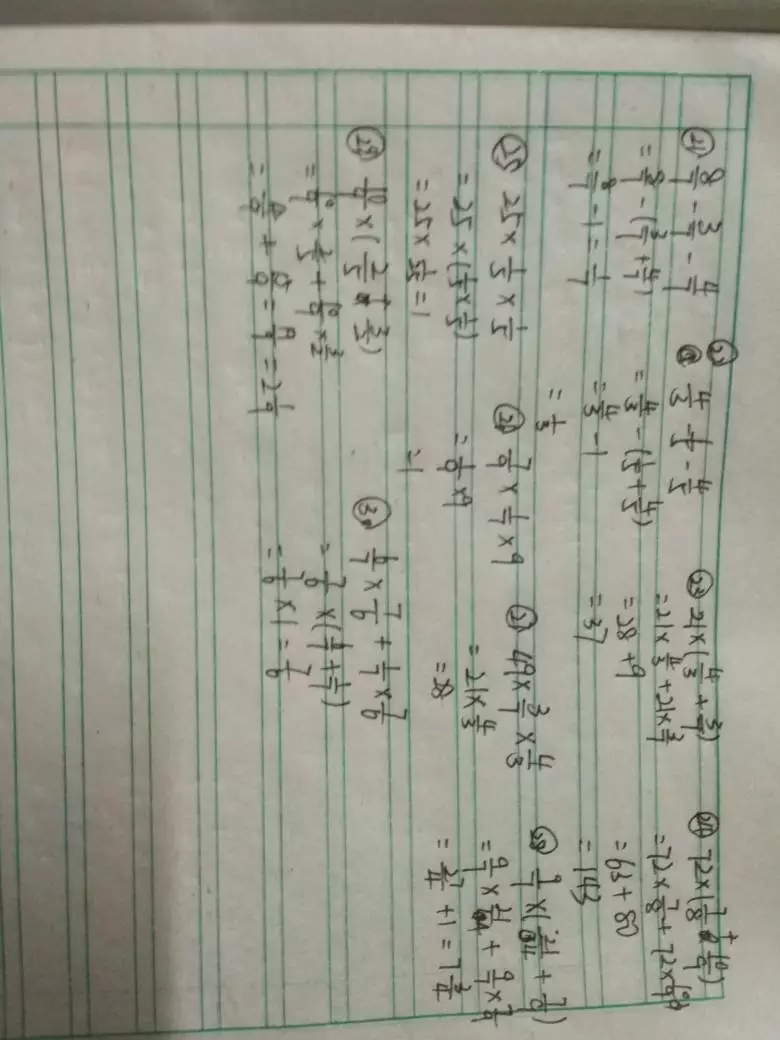 ㉑ 8/7 - 3/7 - 4/7
= 8/7 - (3/7 + 4/7)
= 8/7 - 1 = 1/7
㉒ 4/3 - 1/5 - 4/5
= 4/3 - (1/5 + 4/5)
= 4/3 - 1
= 1/3
㉓ 21×(4/3 + 3/7)
= 21×4/3 + 21×3/7
= 28 + 9
= 37
㉔ 72×(7/8 + 10/9)
= 72×7/8 + 72×10/9
= 63 + 80
= 143
㉕ 25 × 1/5 × 1/5
= 25 × (1/5 × 1/5)
= 25 × 1/25 = 1
㉖ 7/9 × 1/7 × 9
= 1/9 × 9
= 1
㉗ 49 × 3/7 × 4/3
= 21 × 4/3
= 28
㉘ 9/7 × ( + 7/9)
= 9/7 × + 9/7 × 7/9
= 27/4 + 1 = 7 3/4
㉙ 10/9 × (2/5 + 3/2)
= 10/9 × 2/5 + 10/9 × 3/2
= 19/9 = 2 1/9
㉚ 6/7 × 7/6 + 1/7 × 7/6
= 7/6 × (6/7 + 1/7)
= 7/6 × 1 = 7/6